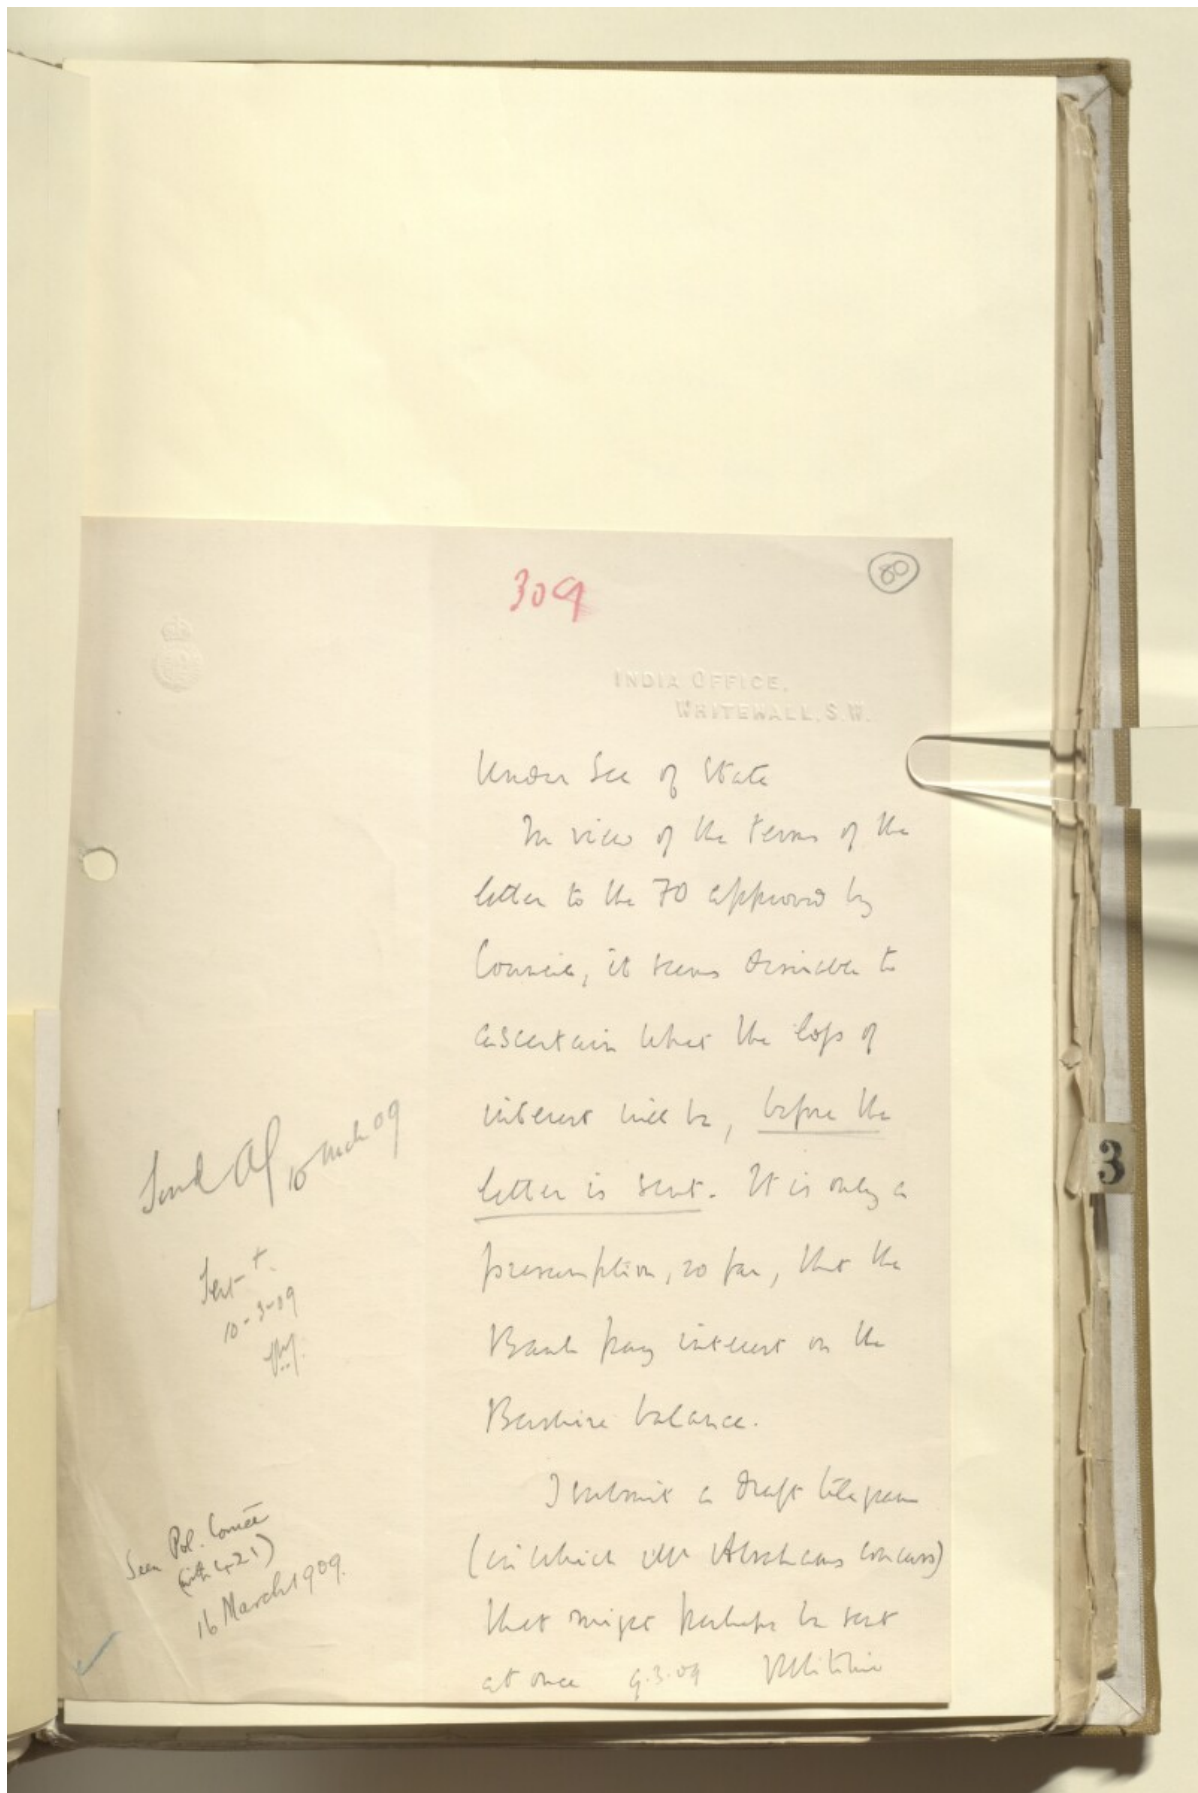 309
80
INDIA OFFICE,
WHITEHALL, S.W.
Under Sec of State
In view of the terms of the
letter to the FO approved by
Council, it seems desirable to
ascertain what the loss of
interest will be, before the
letter is sent. It is only a
presumption, so far, that the
Bank pay interest on the
Bushire balance.
I submit a draft telegram
(in which Mr Abrahams concurs)
that might perhaps be sent
at once 9.3.09 RRitchie
Send
10 March 09
Sent
10-3-09
Seen Pol. Comtee
(with 421)
16 March 1909.
3